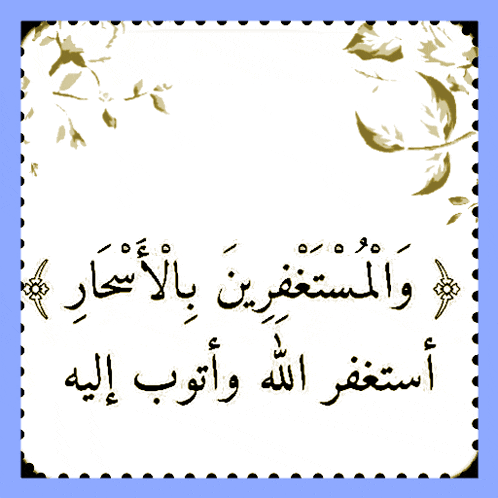 ﴿ وَالْمُسْتَغْفِرِينَ بِالْأَسْحَارِ ﴾
أستغفر الله وأتوب إليه